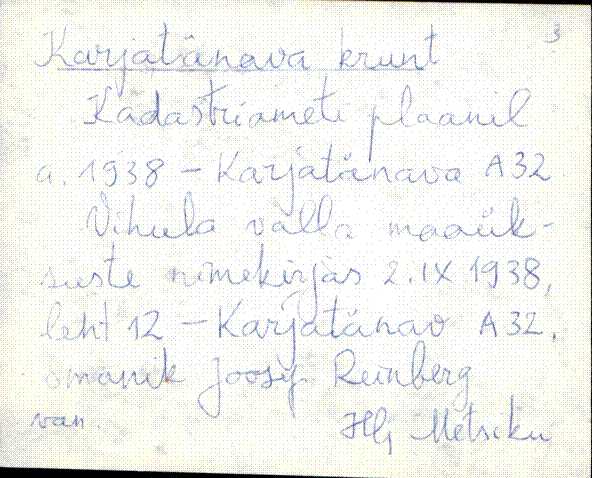 3
Karjatänava krunt
Kadastriameti plaanil
a. 1938 - Karjatänava A32.
Vihula valla maaük-
suste nimekirjas 2.IX 1938,
leht 12 - Karjatänav A32,
omanik Joosep Reinberg
van. Hlj, Metsiku